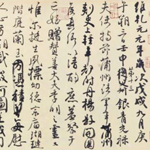 維乾元元年歲次戊戌九月庚
朔三日壬申第十三叔銀青光祿
夫使持節蒲州諸軍事蒲州
刺史上輕車都尉丹楊縣開國
侯真卿以清酌庶羞祭于
亡姪贈贊善大夫季明
惟爾挺生夙標幼德宗廟瑚璉
階庭蘭玉每慰
人心方期戩穀何圖